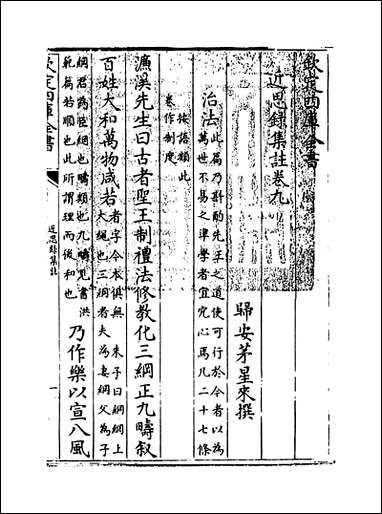 欽定四庫全書
近思錄集註卷九
歸安茅星來撰
治法
此篇乃斟酌先王之道使可行於今者以為
萬世不易之準學者宜究心焉凡二十七條
按語類此
卷作制度
濂溪先生曰古者聖王制禮法修教化三綱正九疇叙
百姓大和萬物咸若
者字今本俱無 朱子曰綱網上
大繩也三綱者夫為妻綱父為子
綱君為臣綱也疇類也九疇見書洪
範篇若順也此所謂理而後和也
乃作樂以宣八風
欽定四庫全書
近思錄集註
一